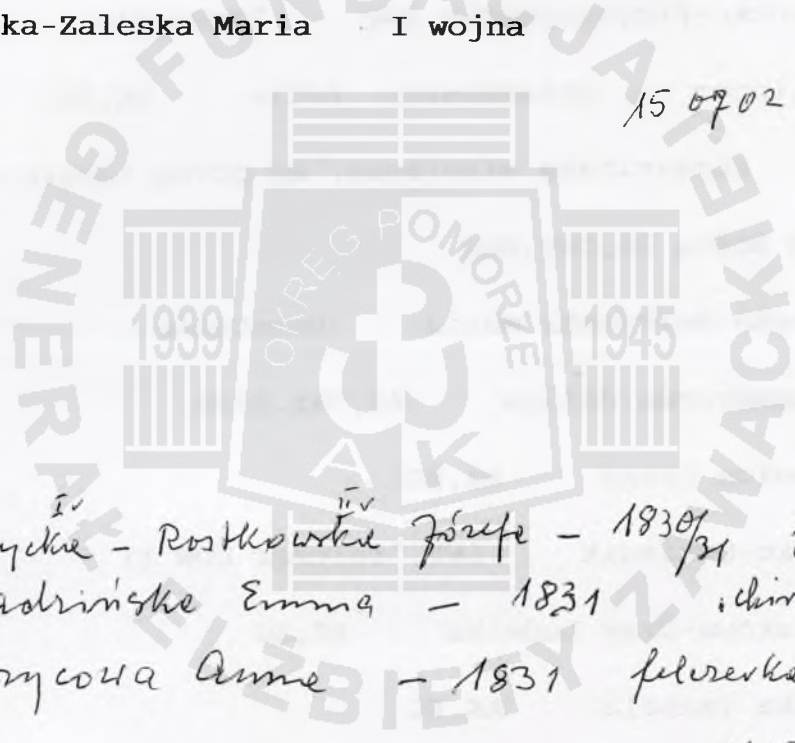 ka-Zaleska Maria I wojna
15 07 02
FUNDACJA
GENERAŁ ELŻBIETY ZAWACKIEJ
OKRĘG POMORZE
1939 1945
AK
I v II v
ycka - Rostkowska Józefa - 1830/31
adzińska Emma - 1831
rycowa Anna - 1831 felczerka